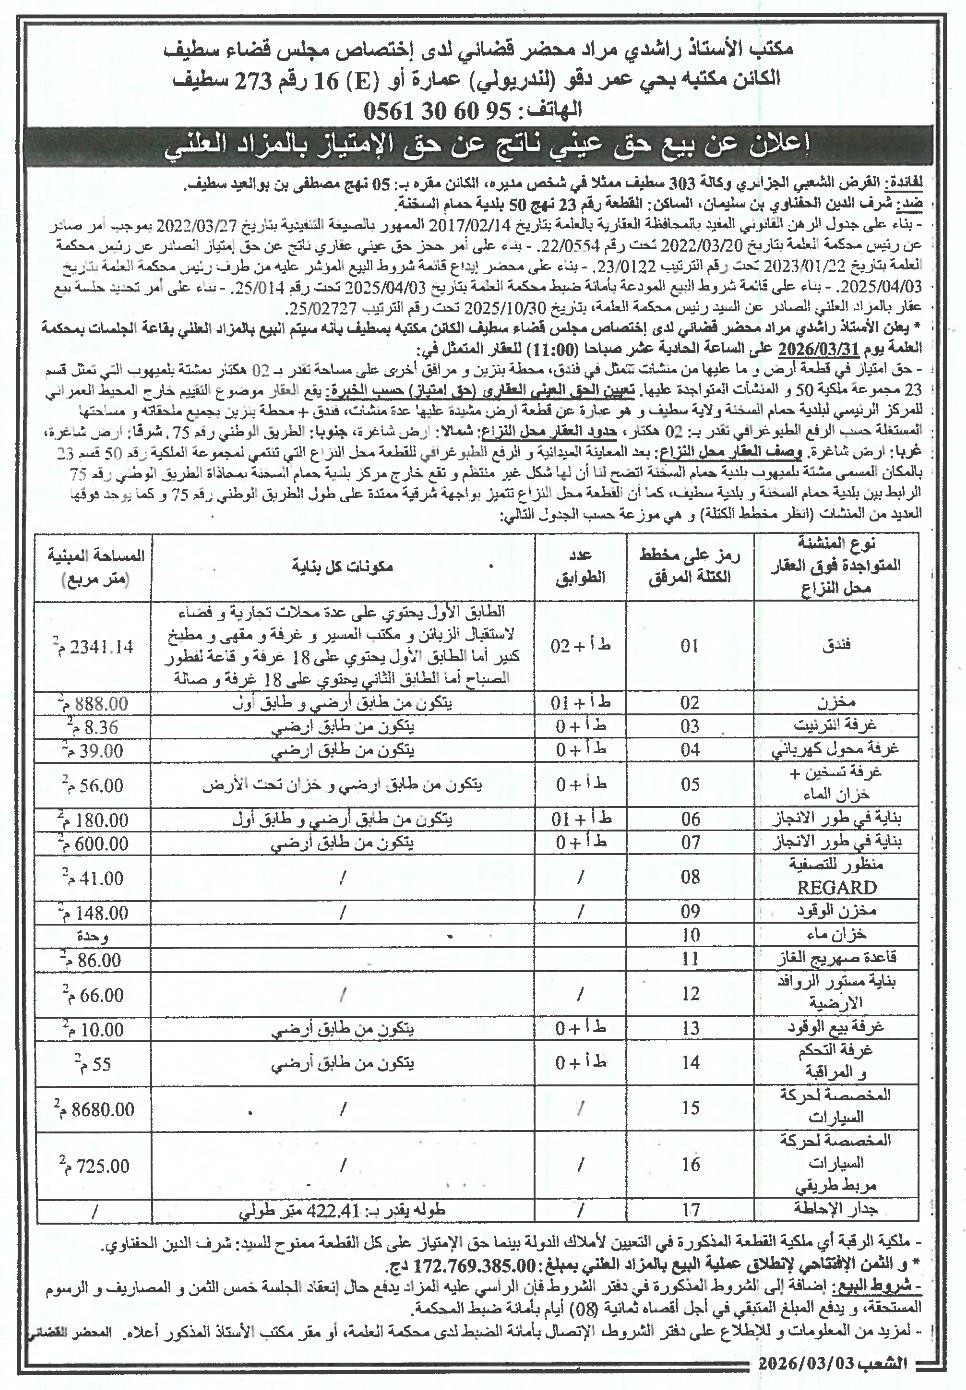 مكتب الأستاذ راشدي مراد محضر قضائي لدى إختصاص مجلس قضاء سطيف
الكائن مكتبه بحي عمر دقو (لندريولي) عمارة أو (E) 16 رقم 273 سطيف
الهاتف: 0561 30 60 95
إعلان عن بيع حق عيني ناتج عن حق الإمتياز بالمزاد العلني
لفائدة: القرض الشعبي الجزائري وكالة 303 سطيف ممثلا في شخص مديره، الكائن مقره بـ: 05 نهج مصطفى بن بوالعيد سطيف.
ضد: شرف الدين الحفناوي بن سليمان، الساكن: القطعة رقم 23 نهج 50 بلدية حمام السخنة.
- بناء على جدول الرهن القانوني المقيد بالمحافظة العقارية بالعلمة بتاريخ 2017/02/14 الممهور بالصيغة التنفيذية بتاريخ 2022/03/27 بموجب أمر صادر
عن رئيس محكمة العلمة بتاريخ 2022/03/20 تحت رقم 22/0554. - بناء على أمر حجز حق عيني عقاري ناتج عن حق إمتياز الصادر عن رئيس محكمة
العلمة بتاريخ 2023/01/22 تحت رقم الترتيب 23/0122. - بناء على محضر إيداع قائمة شروط البيع المؤشر عليه من طرف رئيس محكمة العلمة بتاريخ
2025/04/03. - بناء على قائمة شروط البيع المودعة بأمانة ضبط محكمة العلمة بتاريخ 2025/04/03 تحت رقم 25/014. - بناء على أمر تحديد جلسة بيع
عقار بالمزاد العلني الصادر عن السيد رئيس محكمة العلمة، بتاريخ 2025/10/30 تحت رقم الترتيب 25/02727.
* يعلن الأستاذ راشدي مراد محضر قضائي لدى إختصاص مجلس قضاء سطيف الكائن مكتبه بسطيف بأنه سيتم البيع بالمزاد العلني بقاعة الجلسات بمحكمة
العلمة يوم 2026/03/31 على الساعة الحادية عشر صباحا (11:00) للعقار المتمثل في:
- حق امتياز في قطعة أرض و ما عليها من منشآت تتمثل في فندق، محطة بنزين و مرافق أخرى على مساحة تقدر بـ 02 هكتار بمشتة بلميهوب التي تمثل قسم
23 مجموعة ملكية 50 و المنشآت المتواجدة عليها. تعيين الحق العيني العقاري (حق إمتياز) حسب الخبرة: يقع العقار موضوع التقييم خارج المحيط العمراني
للمركز الرئيسي لبلدية حمام السخنة ولاية سطيف و هو عبارة عن قطعة أرض مشيدة عليها عدة منشآت، فندق + محطة بنزين بجميع ملحقاته و مساحتها
المستغلة حسب الرفع الطبوغرافي تقدر بـ: 02 هكتار، حدود العقار محل النزاع: شمالا: ارض شاغرة، جنوبا: الطريق الوطني رقم 75. شرقا: ارض شاغرة،
غربا: ارض شاغرة. وصف العقار محل النزاع: بعد المعاينة الميدانية و الرفع الطبوغرافي للقطعة محل النزاع التي تنتمي لمجموعة الملكية رقم 50 قسم 23
بالمكان المسمى مشتة بلميهوب بلدية حمام السخنة اتضح لنا أن لها شكل غير منتظم و تقع خارج مركز بلدية حمام السخنة بمحاذاة الطريق الوطني رقم 75
الرابط بين بلدية حمام السخنة و بلدية سطيف، كما أن القطعة محل النزاع تتميز بواجهة شرقية ممتدة على طول الطريق الوطني رقم 75 و كما يوجد فوقها
العديد من المنشآت (انظر مخطط الكتلة) و هي موزعة حسب الجدول التالي:
نوع المنشئة المتواجدة فوق العقار محل النزاع | رمز على مخطط الكتلة المرفق | عدد الطوابق | مكونات كل بناية | المساحة المبنية (متر مربع)
فندق | 01 | ط أ + 02 | الطابق الأول يحتوي على عدة محلات تجارية و فضاء لاستقبال الزبائن و مكتب المسير و غرفة و مقهى و مطبخ كبير أما الطابق الأول يحتوي على 18 غرفة و قاعة لفطور الصباح أما الطابق الثاني يحتوي على 18 غرفة و صالة | 2341.14 م2
مخزن | 02 | ط أ + 01 | يتكون من طابق أرضي و طابق أول | 888.00 م2
غرفة الترنيت | 03 | ط أ + 0 | يتكون من طابق أرضي | 8.36 م2
غرفة محول كهربائي | 04 | ط أ + 0 | يتكون من طابق ارضي | 39.00 م2
غرفة تسخين + خزان الماء | 05 | ط أ + 0 | يتكون من طابق ارضي و خزان تحت الأرض | 56.00 م2
بناية في طور الانجاز | 06 | ط أ + 01 | يتكون من طابق أرضي و طابق أول | 180.00 م2
بناية في طور الانجاز | 07 | ط أ + 0 | يتكون من طابق أرضي | 600.00 م2
منظور للتصفية REGARD | 08 | / | / | 41.00 م2
مخزن الوقود | 09 | / | / | 148.00 م2
خزان ماء | 10 | وحدة
قاعدة صهريج الغاز | 11 | 86.00 م2
بناية مستور الروافد الارضية | 12 | / | / | 66.00 م2
غرفة بيع الوقود | 13 | ط أ + 0 | يتكون من طابق أرضي | 10.00 م2
غرفة التحكم و المراقبة | 14 | ط أ + 0 | يتكون من طابق أرضي | 55 م2
المخصصة لحركة السيارات | 15 | / | / | 8680.00 م2
المخصصة لحركة السيارات مربط طريقي | 16 | / | / | 725.00 م2
جدار الإحاطة | 17 | / | طوله يقدر بـ: 422.41 متر طولي | /
- ملكية الرقبة أي ملكية القطعة المذكورة في التعيين لأملاك الدولة بينما حق الإمتياز على كل القطعة ممنوح للسيد: شرف الدين الحفناوي.
* و الثمن الإفتتاحي لإنطلاق عملية البيع بالمزاد العلني بمبلغ: 172.769.385.00 دج.
- شروط البيع: إضافة إلى الشروط المذكورة في دفتر الشروط فإن الراسي عليه المزاد يدفع حال إنعقاد الجلسة خمس الثمن و المصاريف و الرسوم
المستحقة، و يدفع المبلغ المتبقي في أجل أقصاه ثمانية (08) أيام بأمانة ضبط المحكمة.
- لمزيد من المعلومات و للإطلاع على دفتر الشروط، الإتصال بأمانة الضبط لدى محكمة العلمة، أو مقر مكتب الأستاذ المذكور أعلاه. المحضر القضائي
الشعب 2026/03/03